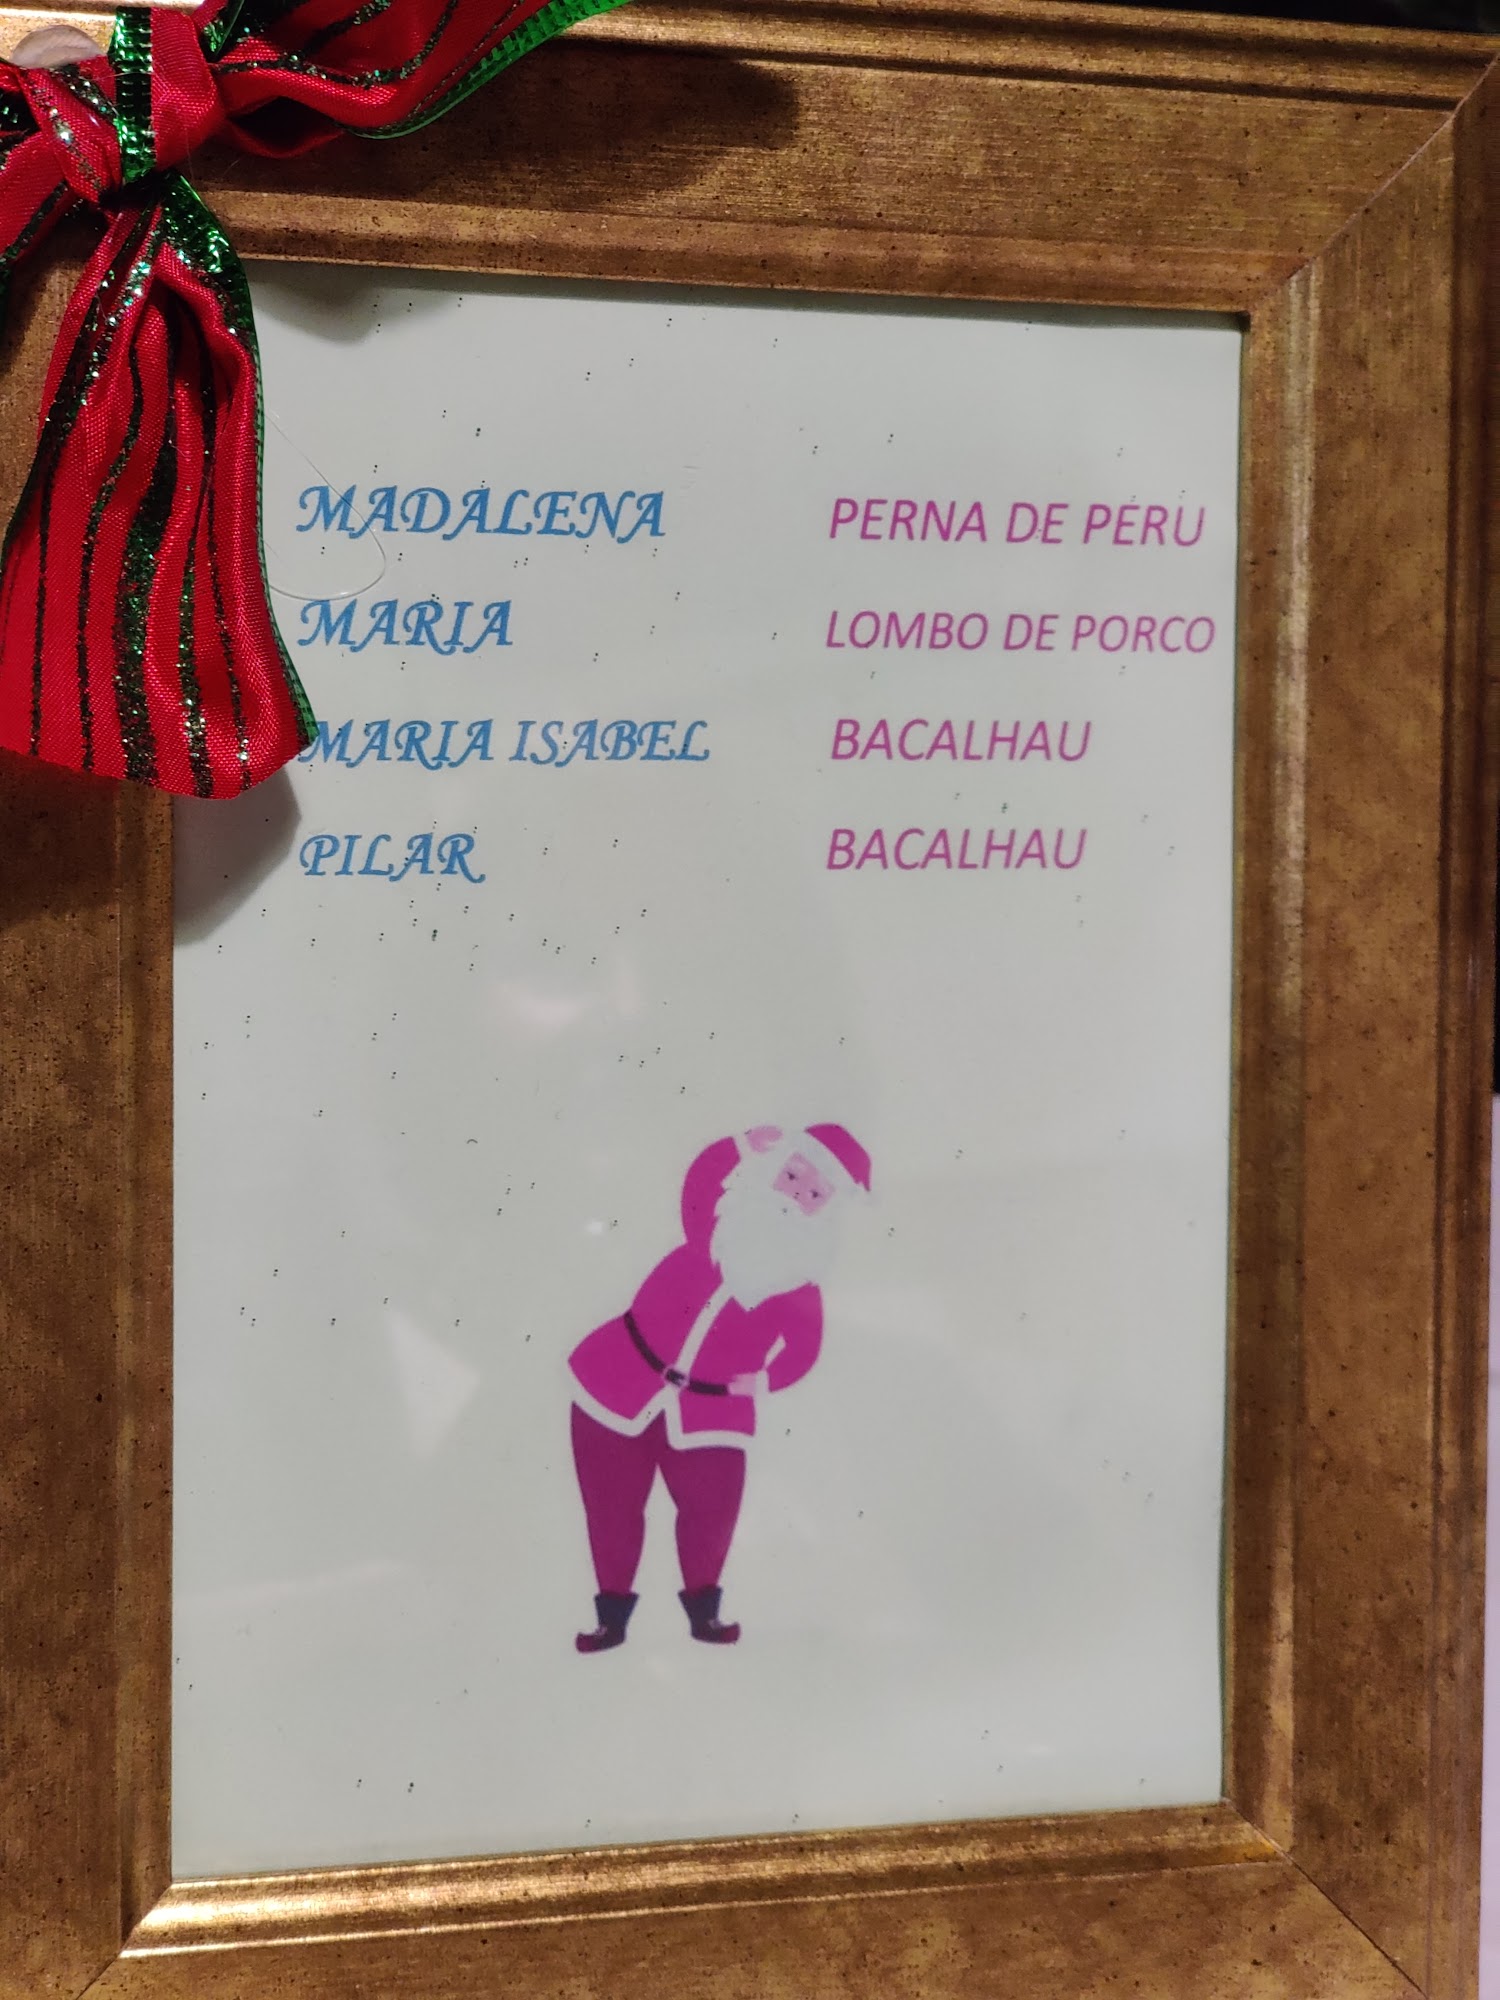 MADALENA PERNA DE PERU
MARIA LOMBO DE PORCO
MARIA ISABEL BACALHAU
PILAR BACALHAU